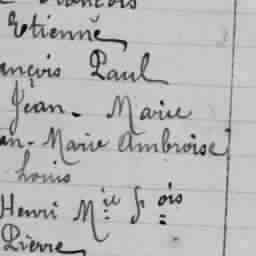 François
Etienne
ançois Paul
Jean-Marie
an-Marie Ambroise
Louis
Henri Mie Fois
Pierre